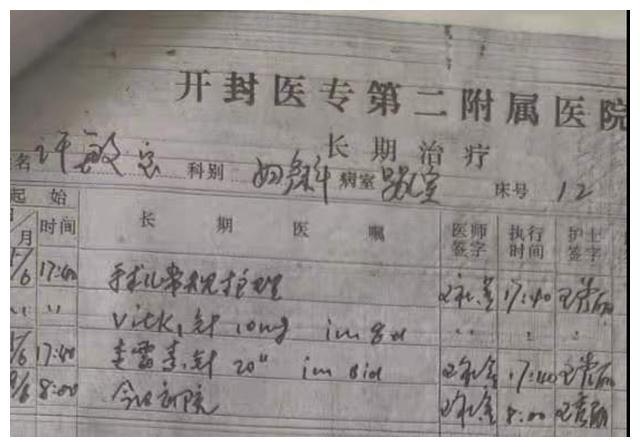 开封医专第二附属医院
长期治疗
名 许敏 科别 妇产科 病室 床号 12
起始 长期医嘱 医师签字 执行时间 护士签字
月 时间
6 17:40 手术儿常规护理 17:40
" " Vitk₁ 针 10mg im qd " "
6 17:40 青霉素针 20" im Bid 17:40
6 8:00 今日出院 8:00